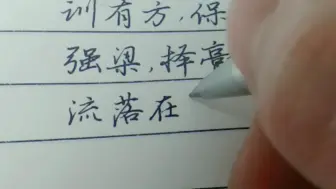 训有方,保
强梁,择膏
流落在